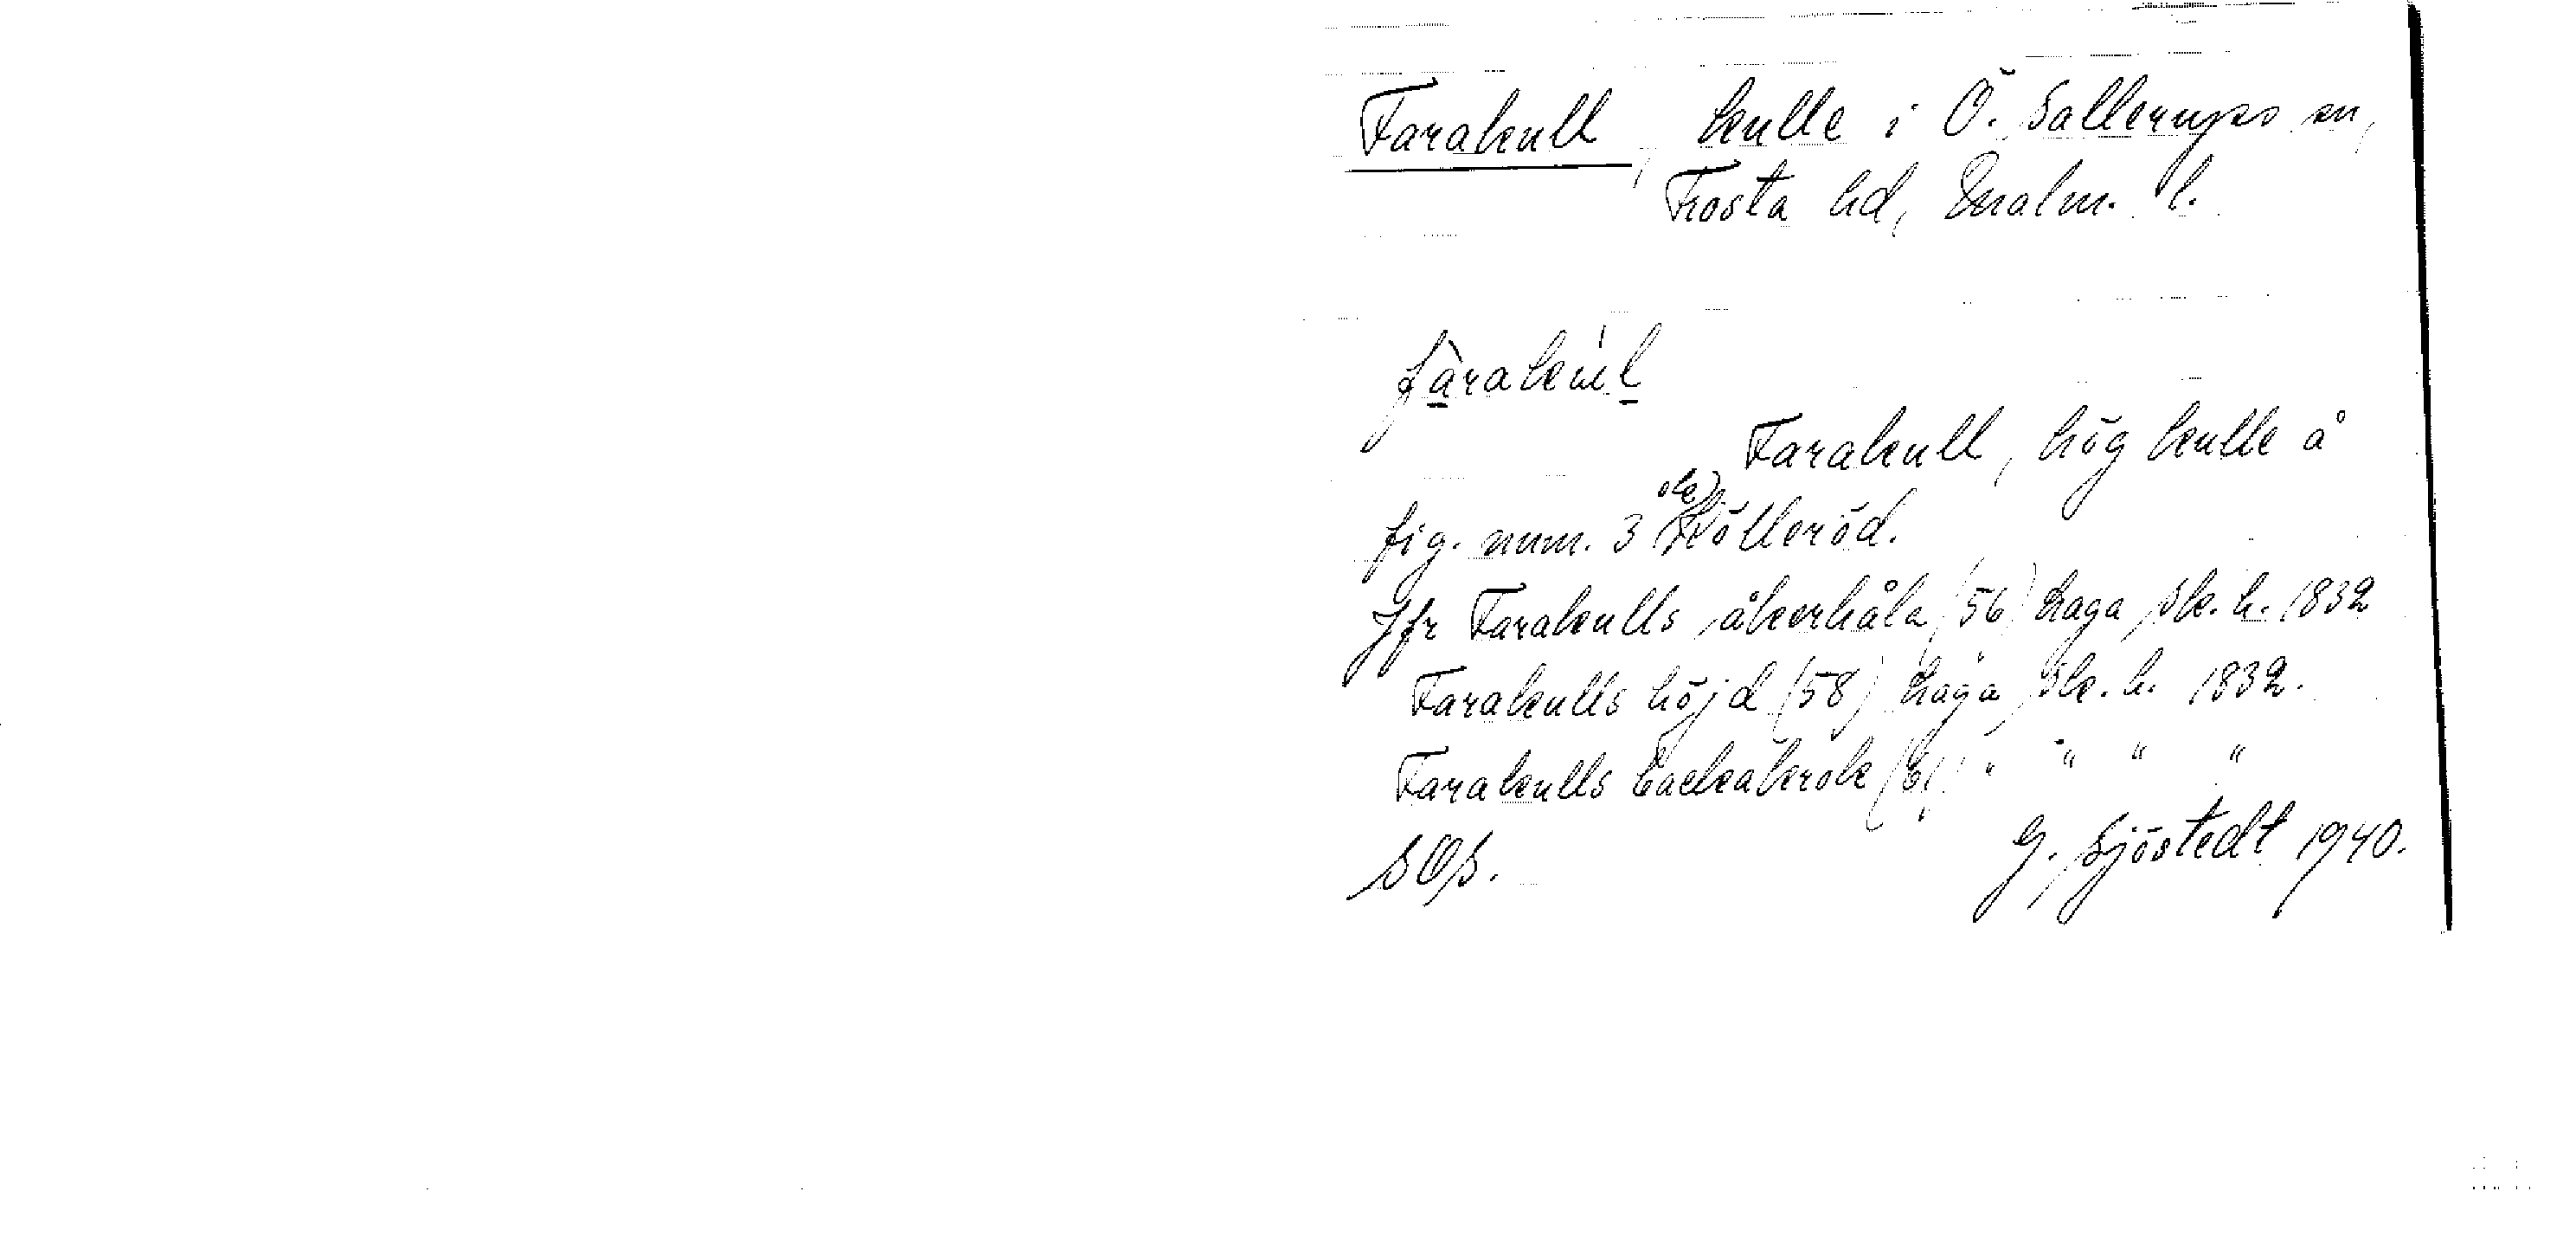 Farakull, kulle i Ö. Sallerups sn,
Frosta hd, Malm. l.
fàrakùl
Farakull, hög kulle å
fig. num. 3 ek) Kölleröd.
Jfr Farakulls åkerhåla (56) Laga sk. h. 1832
Farakulls höjd (58) Laga sk. h. 1832.
Farakulls backaåkrok (61) " " " "
SOS. G. Sjöstedt 1940.